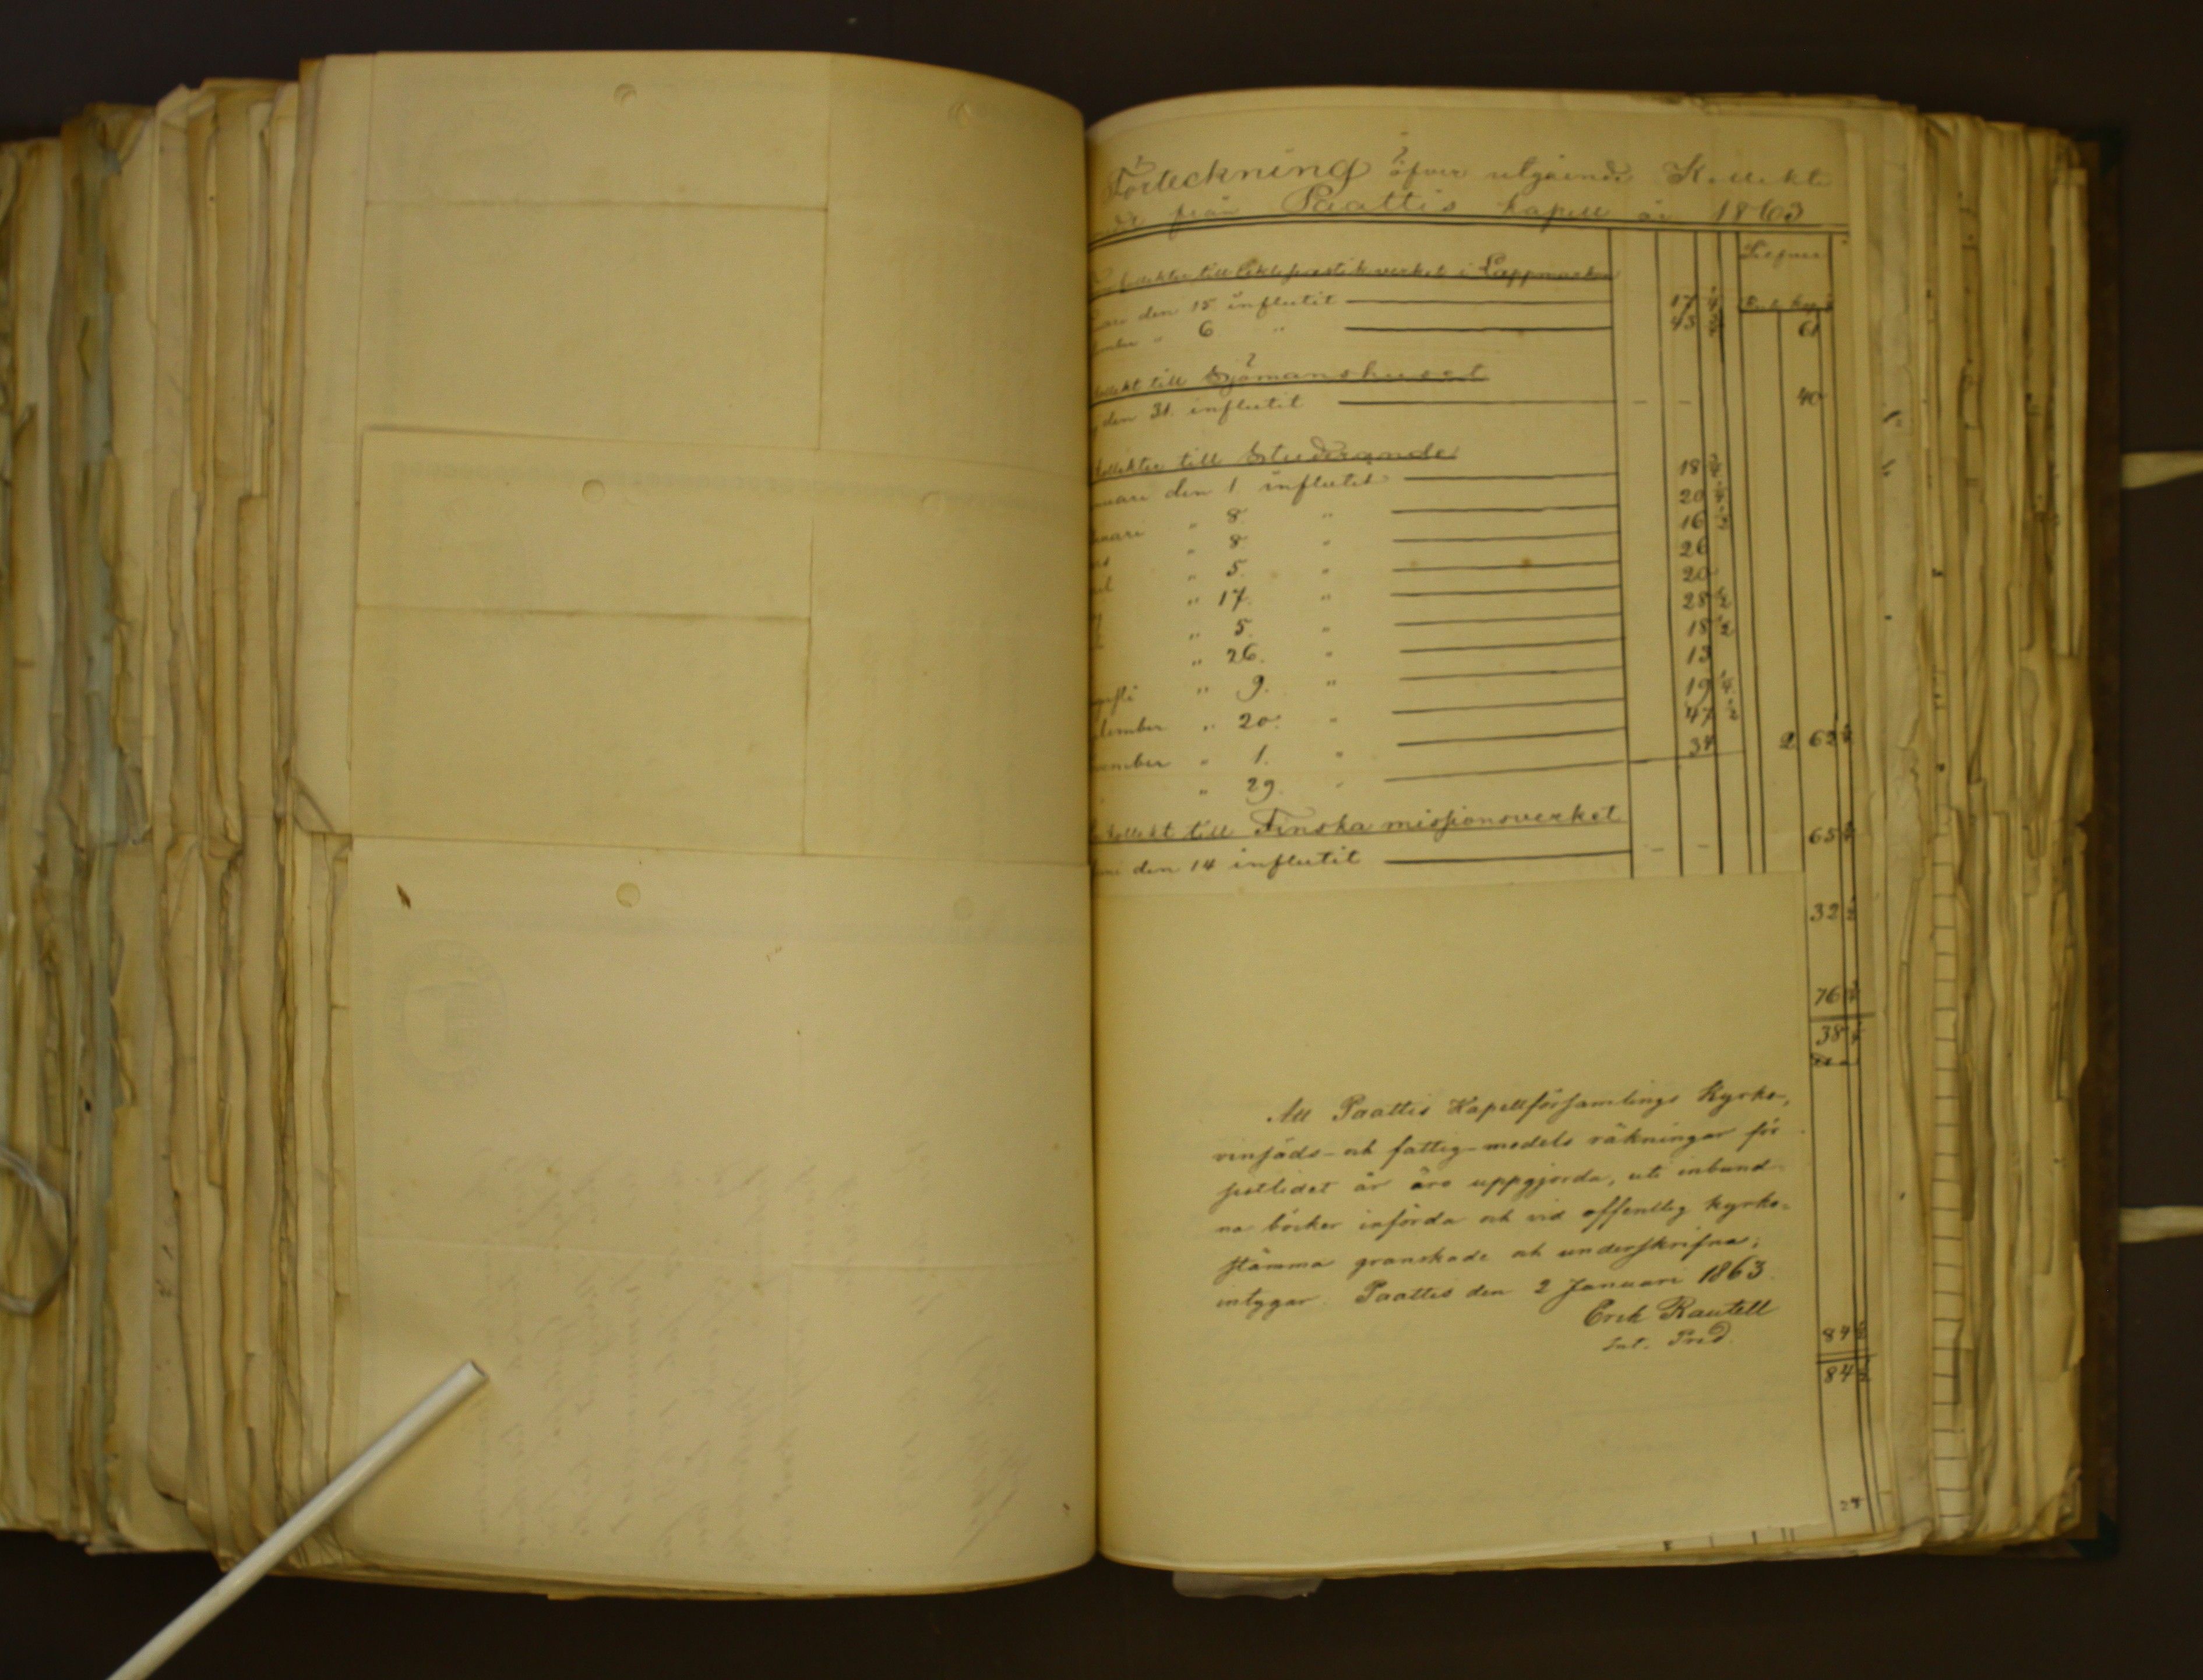 Förteckning öfver utgående Kollekt
från Paattis kapell år 1863
Silfver
till i Lappmarken
Rub. kop.
den 15 influtit 17 1/4
" 6 " 43 61
till Sjömanshuset
den 31. influtit - - 40
Kollekter till Studerande
den 1 influtit 18 3/4
" 8. " 20 1/4
" 8 " 16 1/2
" 5. " 26
" 17. " 20
" 5. " 28 1/2
" 26. " 18 1/2
" 9. " 13
" 20. " 19 1/4
" 1. " 47 1/2
" 29. " 34 2 62
Kollekt till Finska missionsverket
den 14 influtit - - 65
32 1/2
76
38
Att Paattis Kapellförsamlings Kyrko-,
vinsäds- och fattig-medels räkningar för
sistlidet år äro uppgjorda, uti inbund-
na böcker införda och vid offentlig kyrko-
stämma granskade och underskrifna;
intygar. Paattis den 2 Januari 1863.
Erik Rautell
Pred.
84 1/2
84 1/2
24